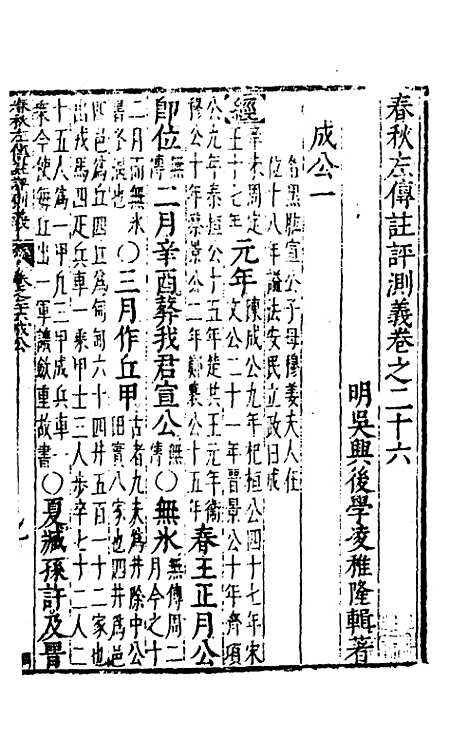 春秋左傳註評測義卷之二十六
明吳興後學凌稚隆輯著
成公一
名黑肱宣公子母穆姜夫人在
位十八年謚法安民立政曰成
經辛未周定王十七年元年陳成公九年杞桓公四十七年宋文公二十一年晉景公十年齊頃
公九年秦桓公十五年楚共王元年衛穆公十年蔡景公二年鄭襄公十五年春王正月公
即位無傳二月辛酉葬我君宣公無傳○無氷無傳周二月今之十
二月而無氷書冬溫也○三月作丘甲古者九夫為井除中公田實八家也四井為邑
四邑為丘四丘為甸凡六十四井五百一十二家也出戎馬四疋兵車一乘甲士三人步卒七十二人二
十五人為一甲凡三甲成兵車一乘今使每丘出一軍譏斂重故書○夏臧孫許及晉
春秋左傳註評測義 卷之二十六 成公